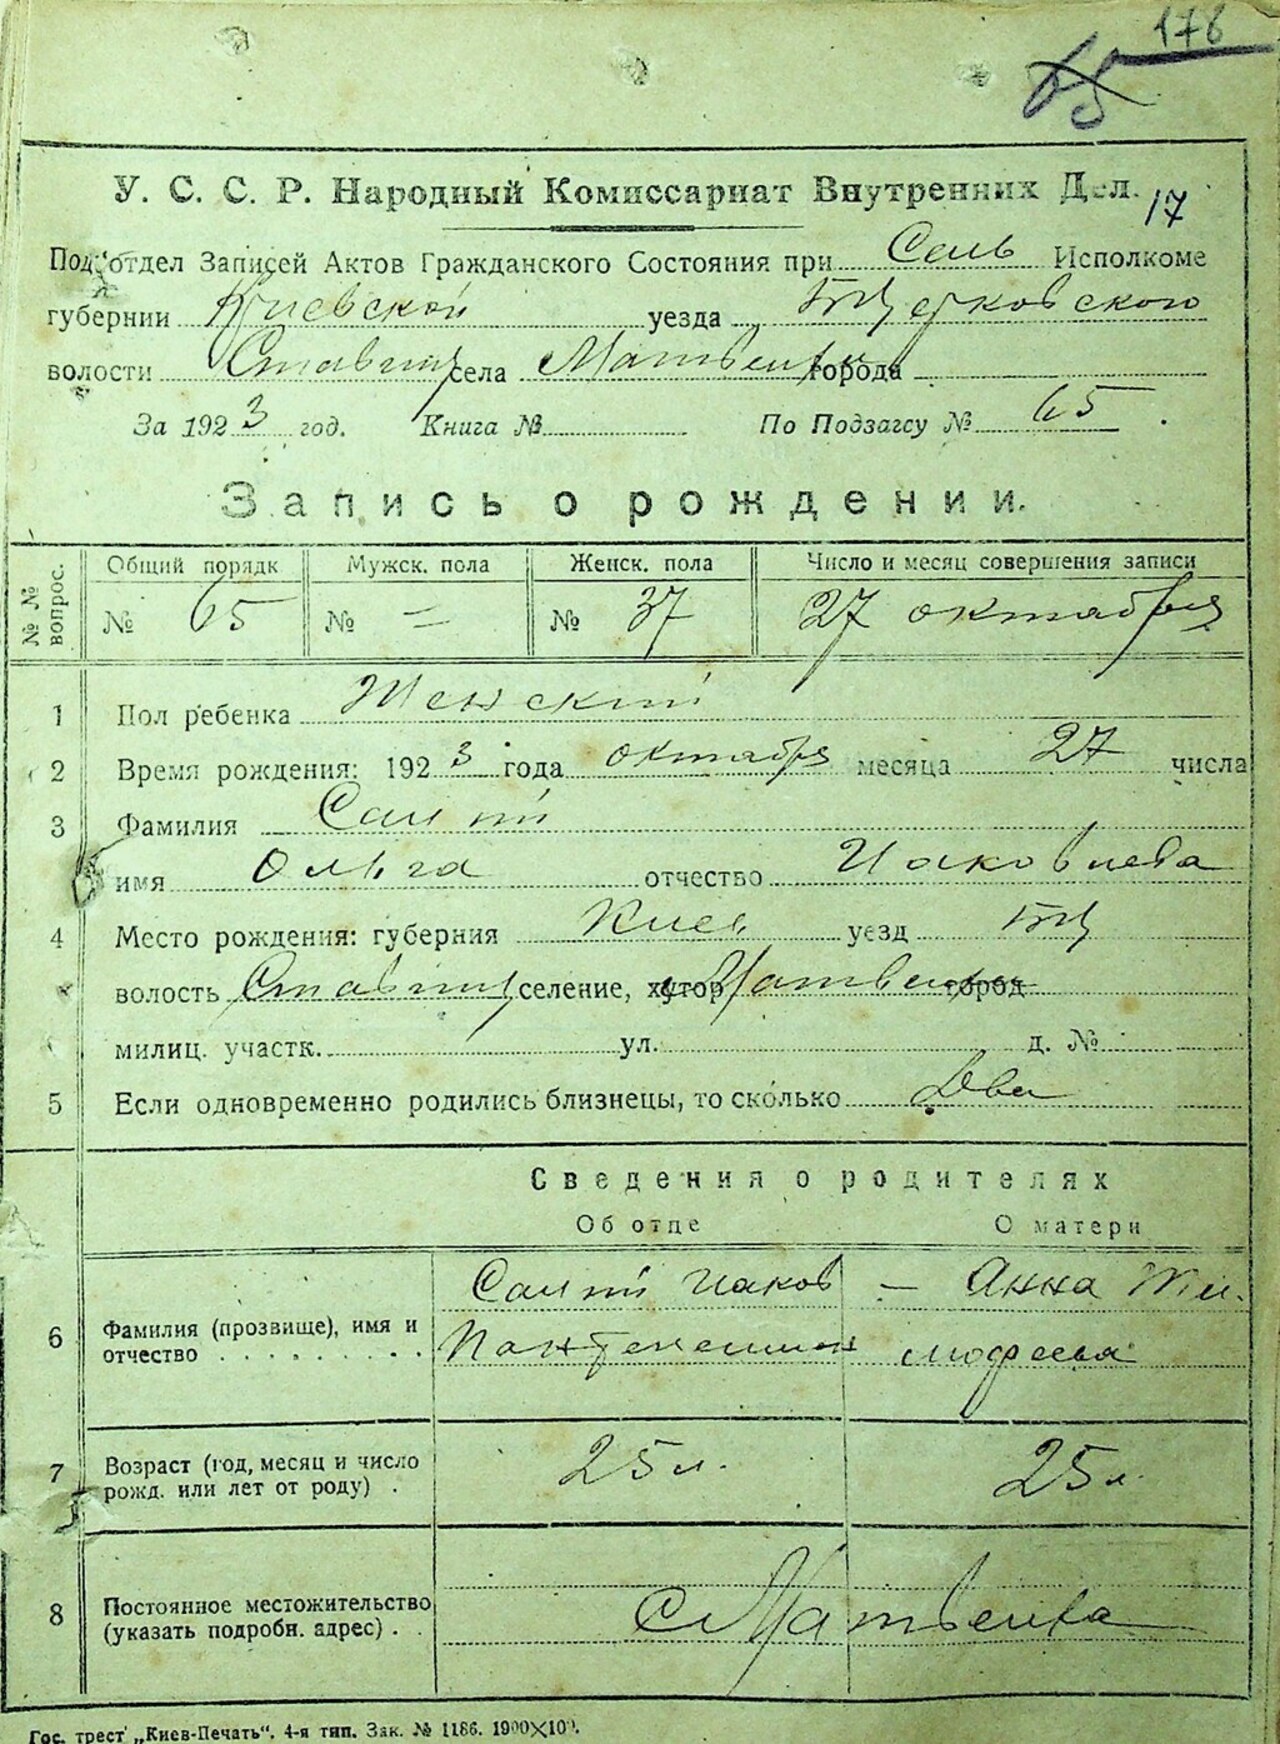 176
65
У. С. С. Р. Народный Комиссариат Внутренних Дел.
17
Подотдел Записей Актов Гражданского Состояния при Сель Исполкоме
губернии Киевской уезда БЦерковского
волости Ставищ села Матвеих города
За 1923 год. Книга № По Подзагсу № 65.
Запись о рождении.
№ № вопрос.
Общий порядк Мужск. пола Женск. пола Число и месяц совершения записи
№ 65 № = № 37 27 октября
1 Пол ребенка Женский
2 Время рождения: 1923 года октября месяца 27 числа
3 Фамилия
имя Ольга отчество Иаковлева
4 Место рождения: губерния Киев уезд БЦ
волость Ставищ селение, хутор Матвеиха город
милиц. участк. ул. д. №
5 Если одновременно родились близнецы, то сколько Два
Сведения о родителях
Об отце О матери
6 Фамилия (прозвище), имя и отчество
Иаков — Анна Ти-
мофеева
7 Возраст (год, месяц и число рожд. или лет от роду) .
25 л. 25 л.
8 Постоянное местожительство (указать подробн. адрес) . .
С Матвеиха
Гос. трест „Киев-Печать“. 4-я тип. Зак. № 1186. 1900×100.